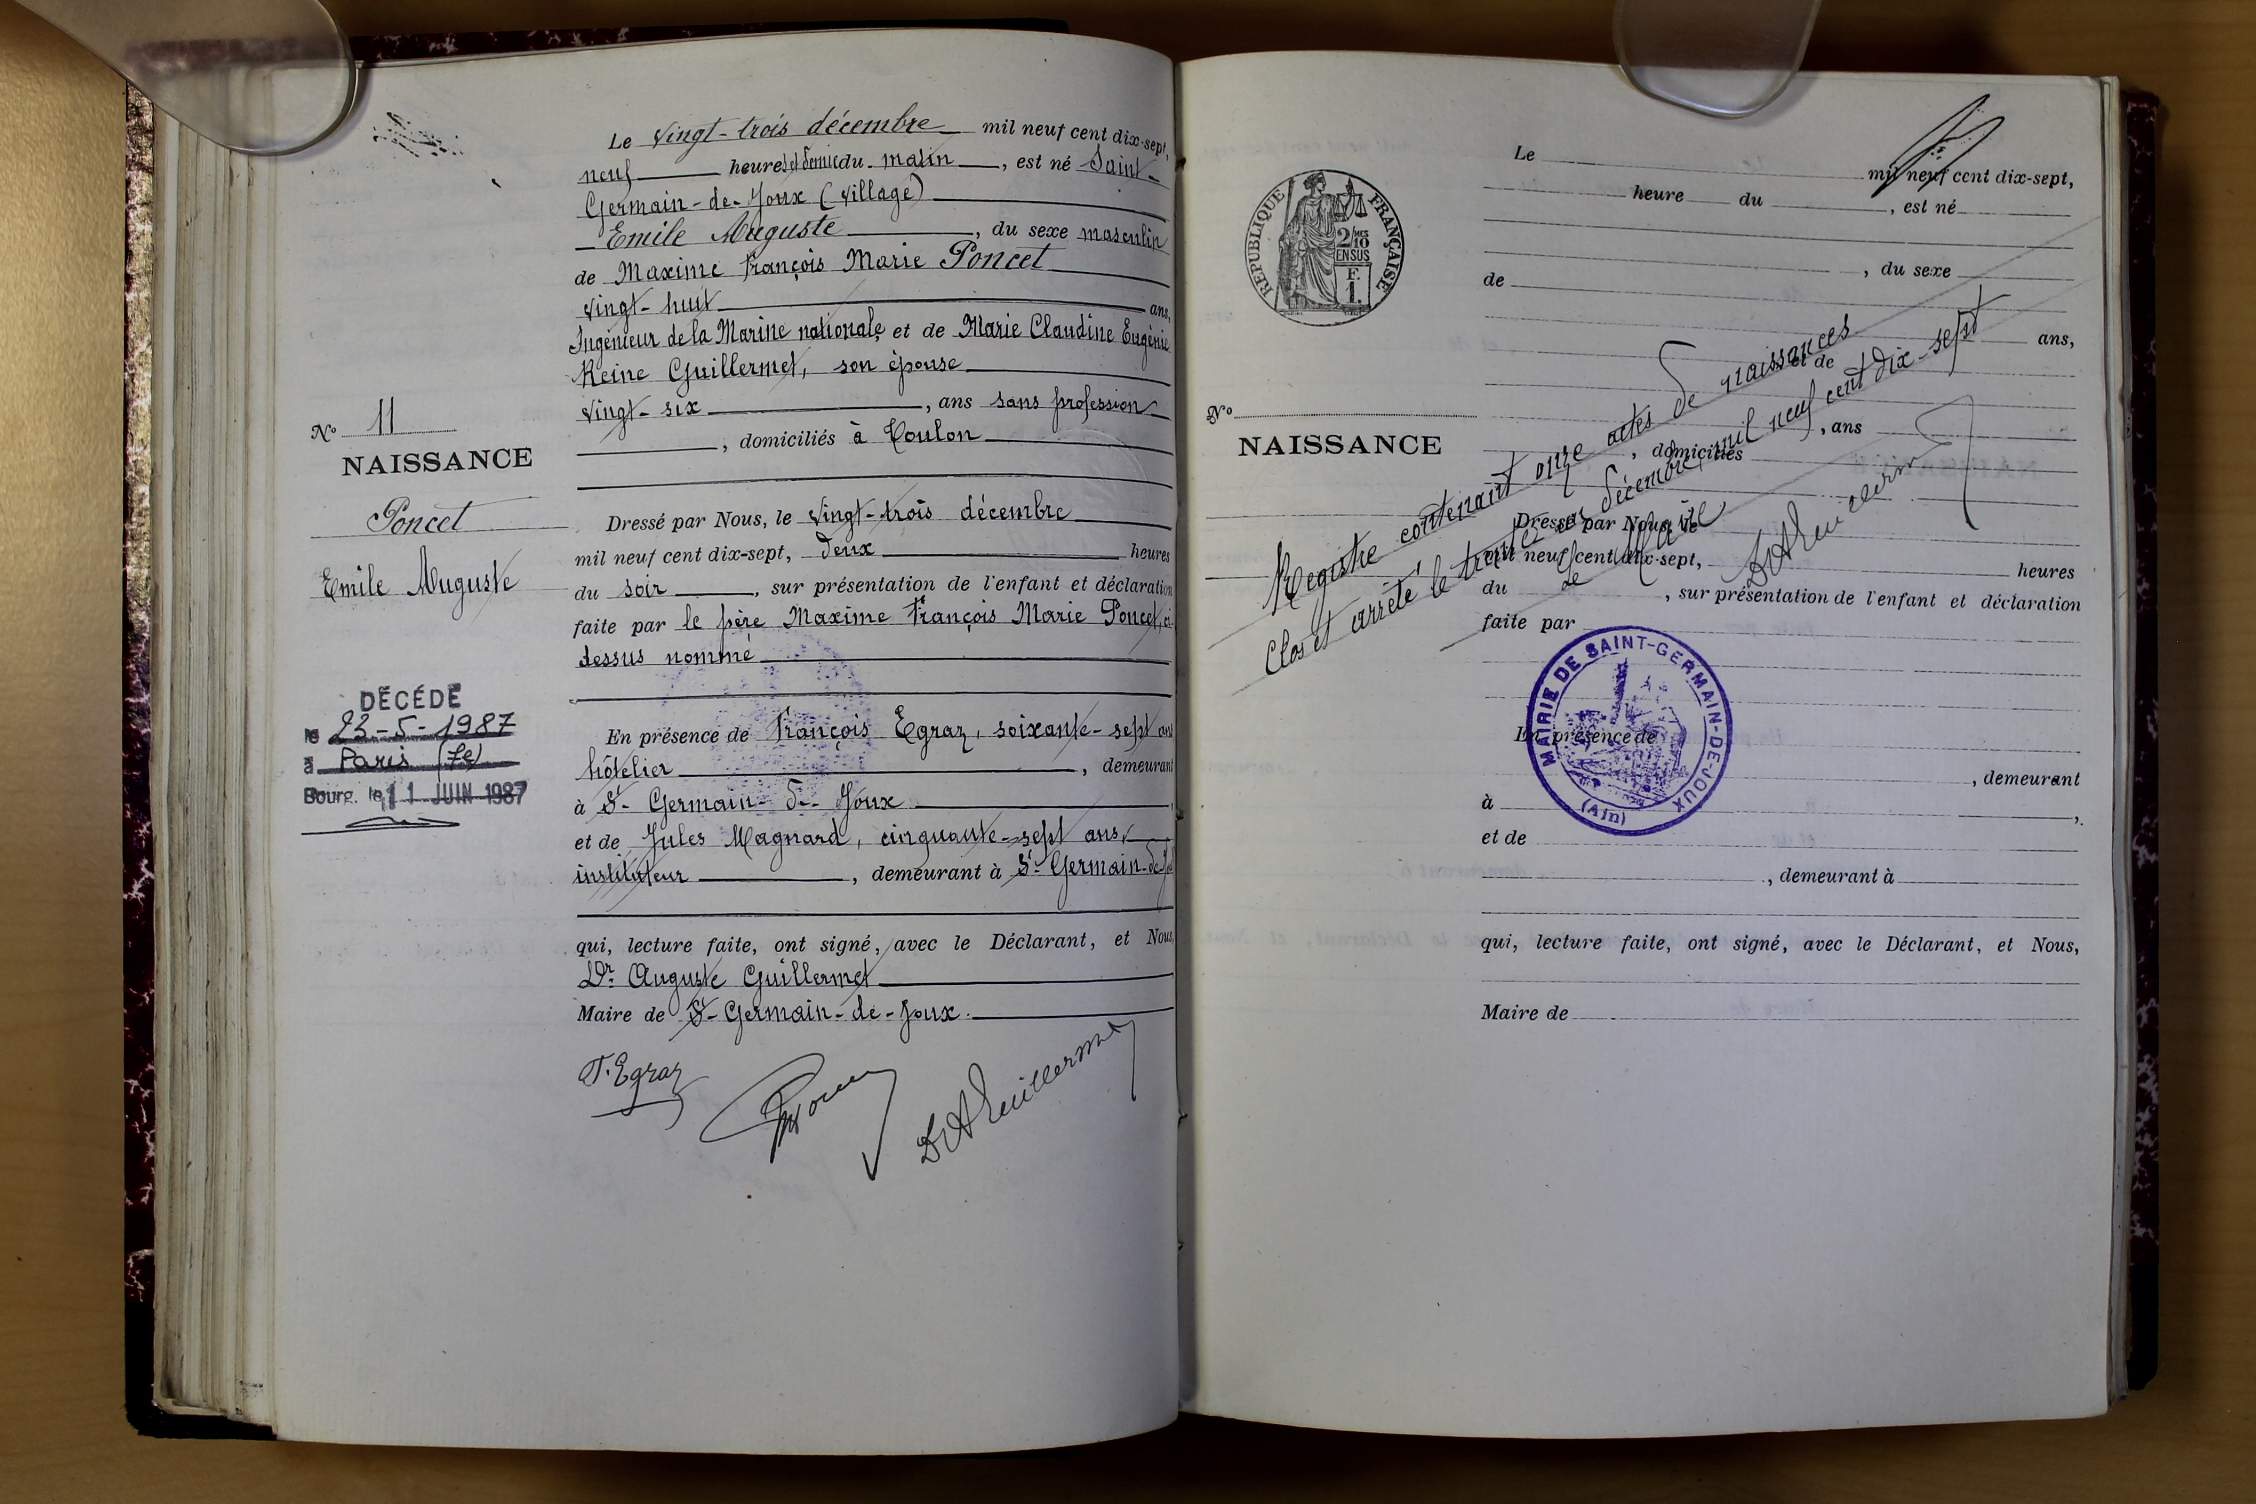 N° 11
NAISSANCE
Poncet
Emile Auguste
DÉCÉDÉ
le 23-5-1987
à Paris (7e)
Bourg. le 11 JUIN 1987
Le vingt-trois décembre mil neuf cent dix-sept,
neuf heures et demie du matin, est né Saint-
Germain-de-Joux (village)
Emile Auguste, du sexe masculin
de Maxime François Marie Poncet
vingt-huit ans,
Ingénieur de la Marine nationale et de Marie Claudine Eugénie
Reine Guillermet, son épouse
vingt-six, ans sans profession
, domiciliés à Toulon
Dressé par Nous, le vingt-trois décembre
mil neuf cent dix-sept, deux heures
du soir, sur présentation de l'enfant et déclaration
faite par le père Maxime François Marie Poncet, ci
dessus nommé
En présence de François Egraz, soixante-sept ans
hôtelier, demeurant
à St-Germain-de-Joux,
et de Jules Magnard, cinquante-sept ans,
instituteur, demeurant à St-Germain-de-
qui, lecture faite, ont signé, avec le Déclarant, et Nous,
Dr. Auguste Guillermet
Maire de St-Germain-de-Joux.
F. Egraz
Dr A Guillermet
RÉPUBLIQUE FRANÇAISE
2/10 MES
EN SUS
F.
1.
N°
NAISSANCE
Le mil neuf cent dix-sept,
heure du , est né
, du sexe
de
ans,
et de
, ans
, domiciliés
Dressé par Nous, le
mil neuf cent dix-sept,
heures
du , sur présentation de l'enfant et déclaration
faite par
En présence de
, demeurant
à ,
et de
, demeurant à
qui, lecture faite, ont signé, avec le Déclarant, et Nous,
Maire de
Registre contenant onze actes de naissances
Clos et arrêté le trente et un décembre mil neuf cent dix-sept
Le Maire
Dr A Guillermet
MAIRIE DE SAINT-GERMAIN-DE-JOUX
(Ain)